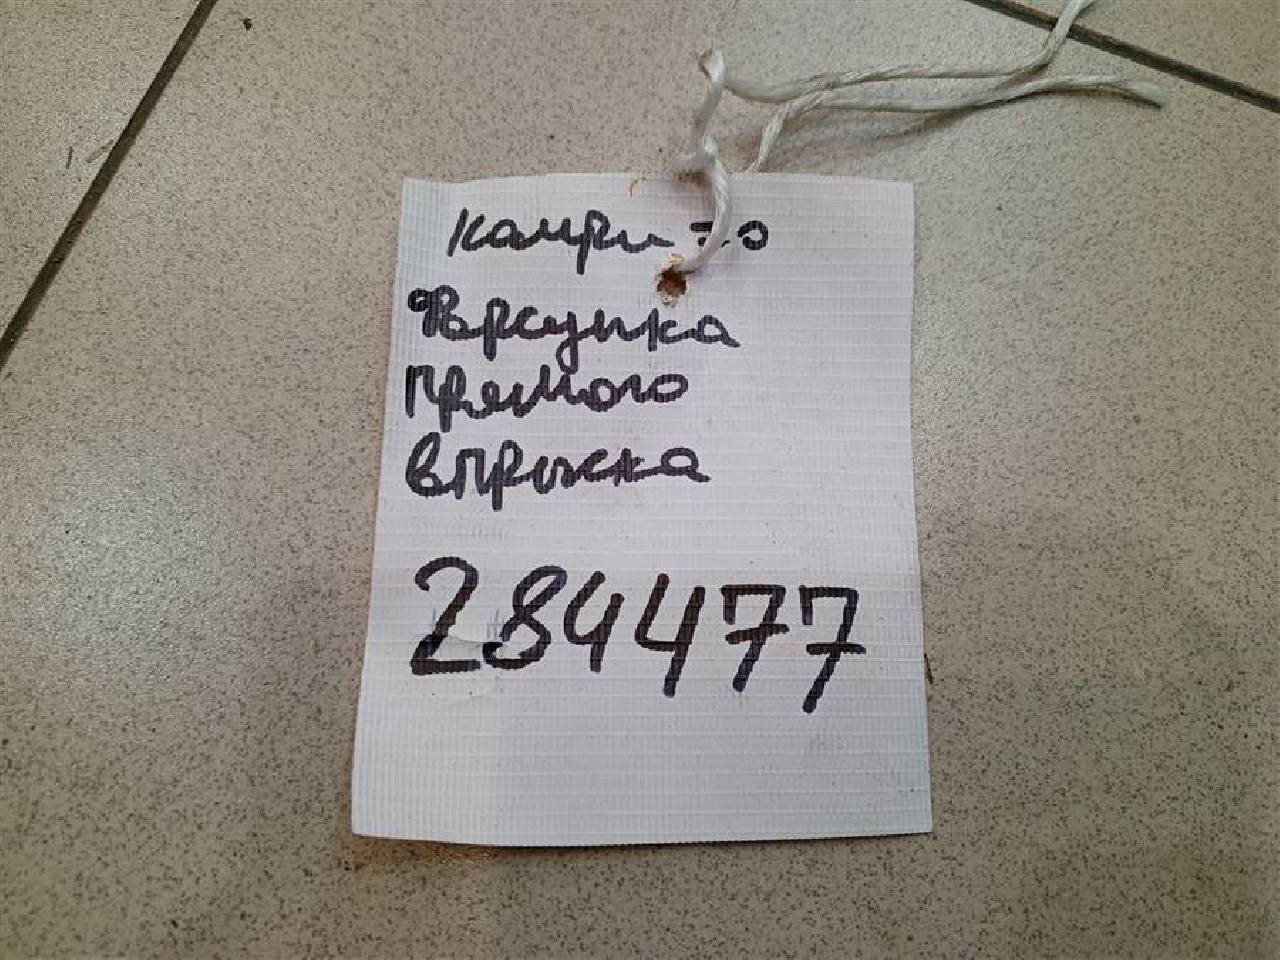 камри 70
Форсунка
прямого
впрыска
284477